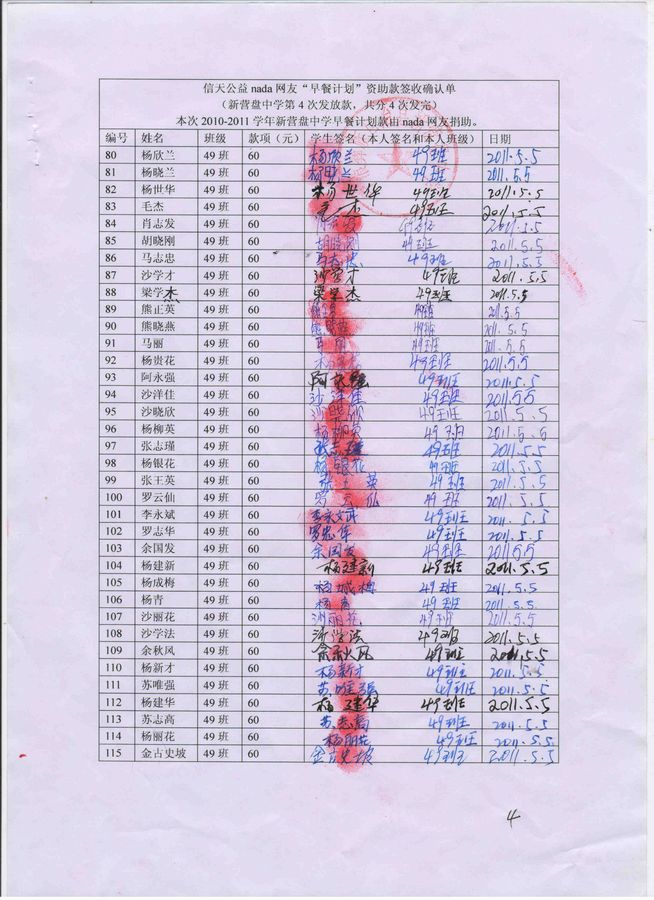 信天公益 nada 网友“早餐计划”资助款签收确认单
（新营盘中学第 4 次发放款，共分 4 次发完）
本次 2010-2011 学年新营盘中学早餐计划款由 nada 网友捐助。
编号 姓名 班级 款项（元） 学生签名（本人签名和本人班级） 日期
80 杨欣兰 49 班 60 杨欣兰 49班 2011.5.5
81 杨晓兰 49 班 60 49班 2011.5.5
82 杨世华 49 班 60 杨世华 49班 2011.5.5
83 毛杰 49 班 60 毛杰 49班 2011.5.5
84 肖志发 49 班 60 49班 2011.5.5
85 胡晓刚 49 班 60 胡晓刚 49班 2011.5.5
86 马志忠 49 班 60 马志忠 49班 2011.5.5
87 沙学才 49 班 60 沙学才 49班 2011.5.5
88 梁学杰 49 班 60 梁学杰 49班 2011.5.5
89 熊正英 49 班 60 49班 2011.5.5
90 熊晓燕 49 班 60 49班 2011.5.5
91 马丽 49 班 60 49班 2011.5.5
92 杨贵花 49 班 60 49班 2011.5.5
93 阿永强 49 班 60 阿永强 49班 2011.5.5
94 沙洋佳 49 班 60 沙洋佳 49班 2011.5.5
95 沙晓欣 49 班 60 沙晓欣 49班 2011.5.5
96 杨柳英 49 班 60 49班 2011.5.5
97 张志瑾 49 班 60 49班 2011.5.5
98 杨银花 49 班 60 杨银花 49班 2011.5.5
99 张王英 49 班 60 张王英 49班 2011.5.5
100 罗云仙 49 班 60 罗云仙 49班 2011.5.5
101 李永斌 49 班 60 李永斌 49班 2011.5.5
102 罗志华 49 班 60 49班 2011.5.5
103 余国发 49 班 60 余国发 49班 2011.5.5
104 杨建新 49 班 60 杨建新 49班 2011.5.5
105 杨成梅 49 班 60 49班 2011.5.5
106 杨青 49 班 60 杨青 49班 2011.5.5
107 沙丽花 49 班 60 沙丽花 49班 2011.5.5
108 沙学法 49 班 60 沙学法 49班 2011.5.5
109 余秋风 49 班 60 余秋风 49班 2011.5.5
110 杨新才 49 班 60 杨新才 49班 2011.5.5
111 苏唯强 49 班 60 苏唯强 49班 2011.5.5
112 杨建华 49 班 60 杨建华 49班 2011.5.5
113 苏志高 49 班 60 苏志高 49班 2011.5.5
114 杨丽花 49 班 60 49班 2011.5.5
115 金古史坡 49 班 60 金古史坡 49班 2011.5.5
4